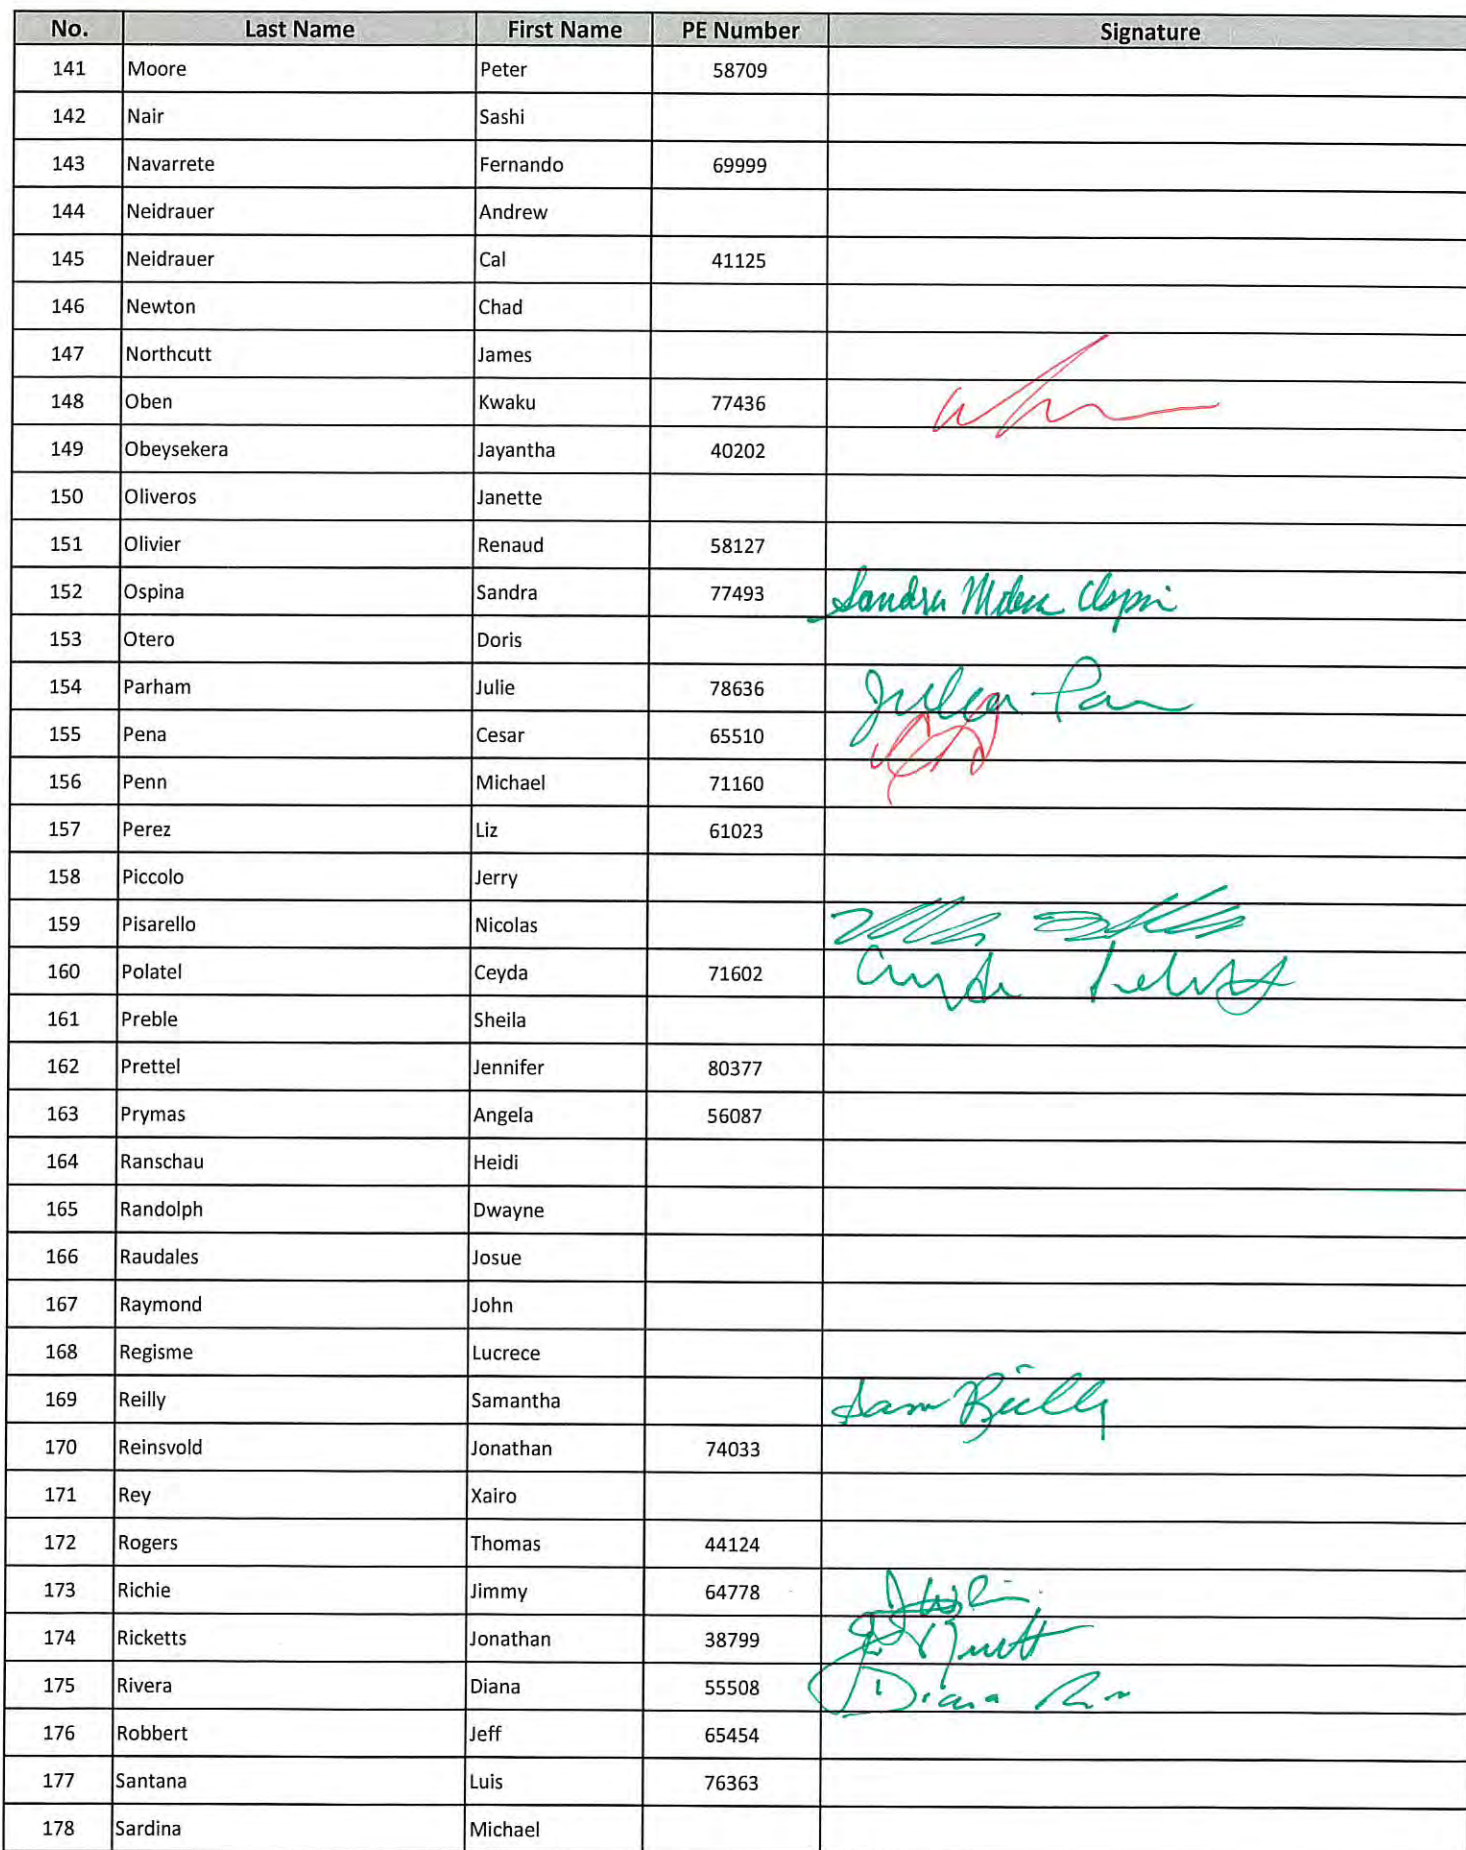 No. Last Name First Name PE Number Signature
141 Moore Peter 58709
142 Nair Sashi
143 Navarrete Fernando 69999
144 Neidrauer Andrew
145 Neidrauer Cal 41125
146 Newton Chad
147 Northcutt James
148 Oben Kwaku 77436
149 Obeysekera Jayantha 40202
150 Oliveros Janette
151 Olivier Renaud 58127
152 Ospina Sandra 77493 Sandra
153 Otero Doris
154 Parham Julie 78636
155 Pena Cesar 65510
156 Penn Michael 71160
157 Perez Liz 61023
158 Piccolo Jerry
159 Pisarello Nicolas
160 Polatel Ceyda 71602
161 Preble Sheila
162 Prettel Jennifer 80377
163 Prymas Angela 56087
164 Ranschau Heidi
165 Randolph Dwayne
166 Raudales Josue
167 Raymond John
168 Regisme Lucrece
169 Reilly Samantha Sam Reilly
170 Reinsvold Jonathan 74033
171 Rey Xairo
172 Rogers Thomas 44124
173 Richie Jimmy 64778
174 Ricketts Jonathan 38799
175 Rivera Diana 55508 Diana
176 Robbert Jeff 65454
177 Santana Luis 76363
178 Sardina Michael